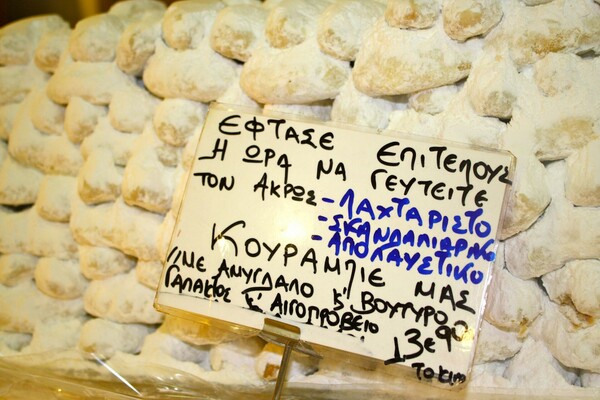 ΕΦΤΑΣΕ ΕΠΙΤΕΛΟΥΣ
Η ΩΡΑ ΝΑ ΓΕΥΤΕΙΤΕ
ΤΟΝ ΑΚΡΩΣ - ΛΑΧΤΑΡΙΣΤΟ
- ΣΚΑΝΔΑΛΙΑΡΙΚΟ
- ΑΠΟΛΑΥΣΤΙΚΟ
ΚΟΥΡΑΜΠΙΕ ΜΑΣ
ΜΕ ΑΜΥΓΔΑΛΟ & ΒΟΥΤΥΡΟ
ΓΑΛΑΚΤΟΣ & ΑΙΓΟΠΡΟΒΕΙΟ
13€90
ΤΟ ΚΙΛ